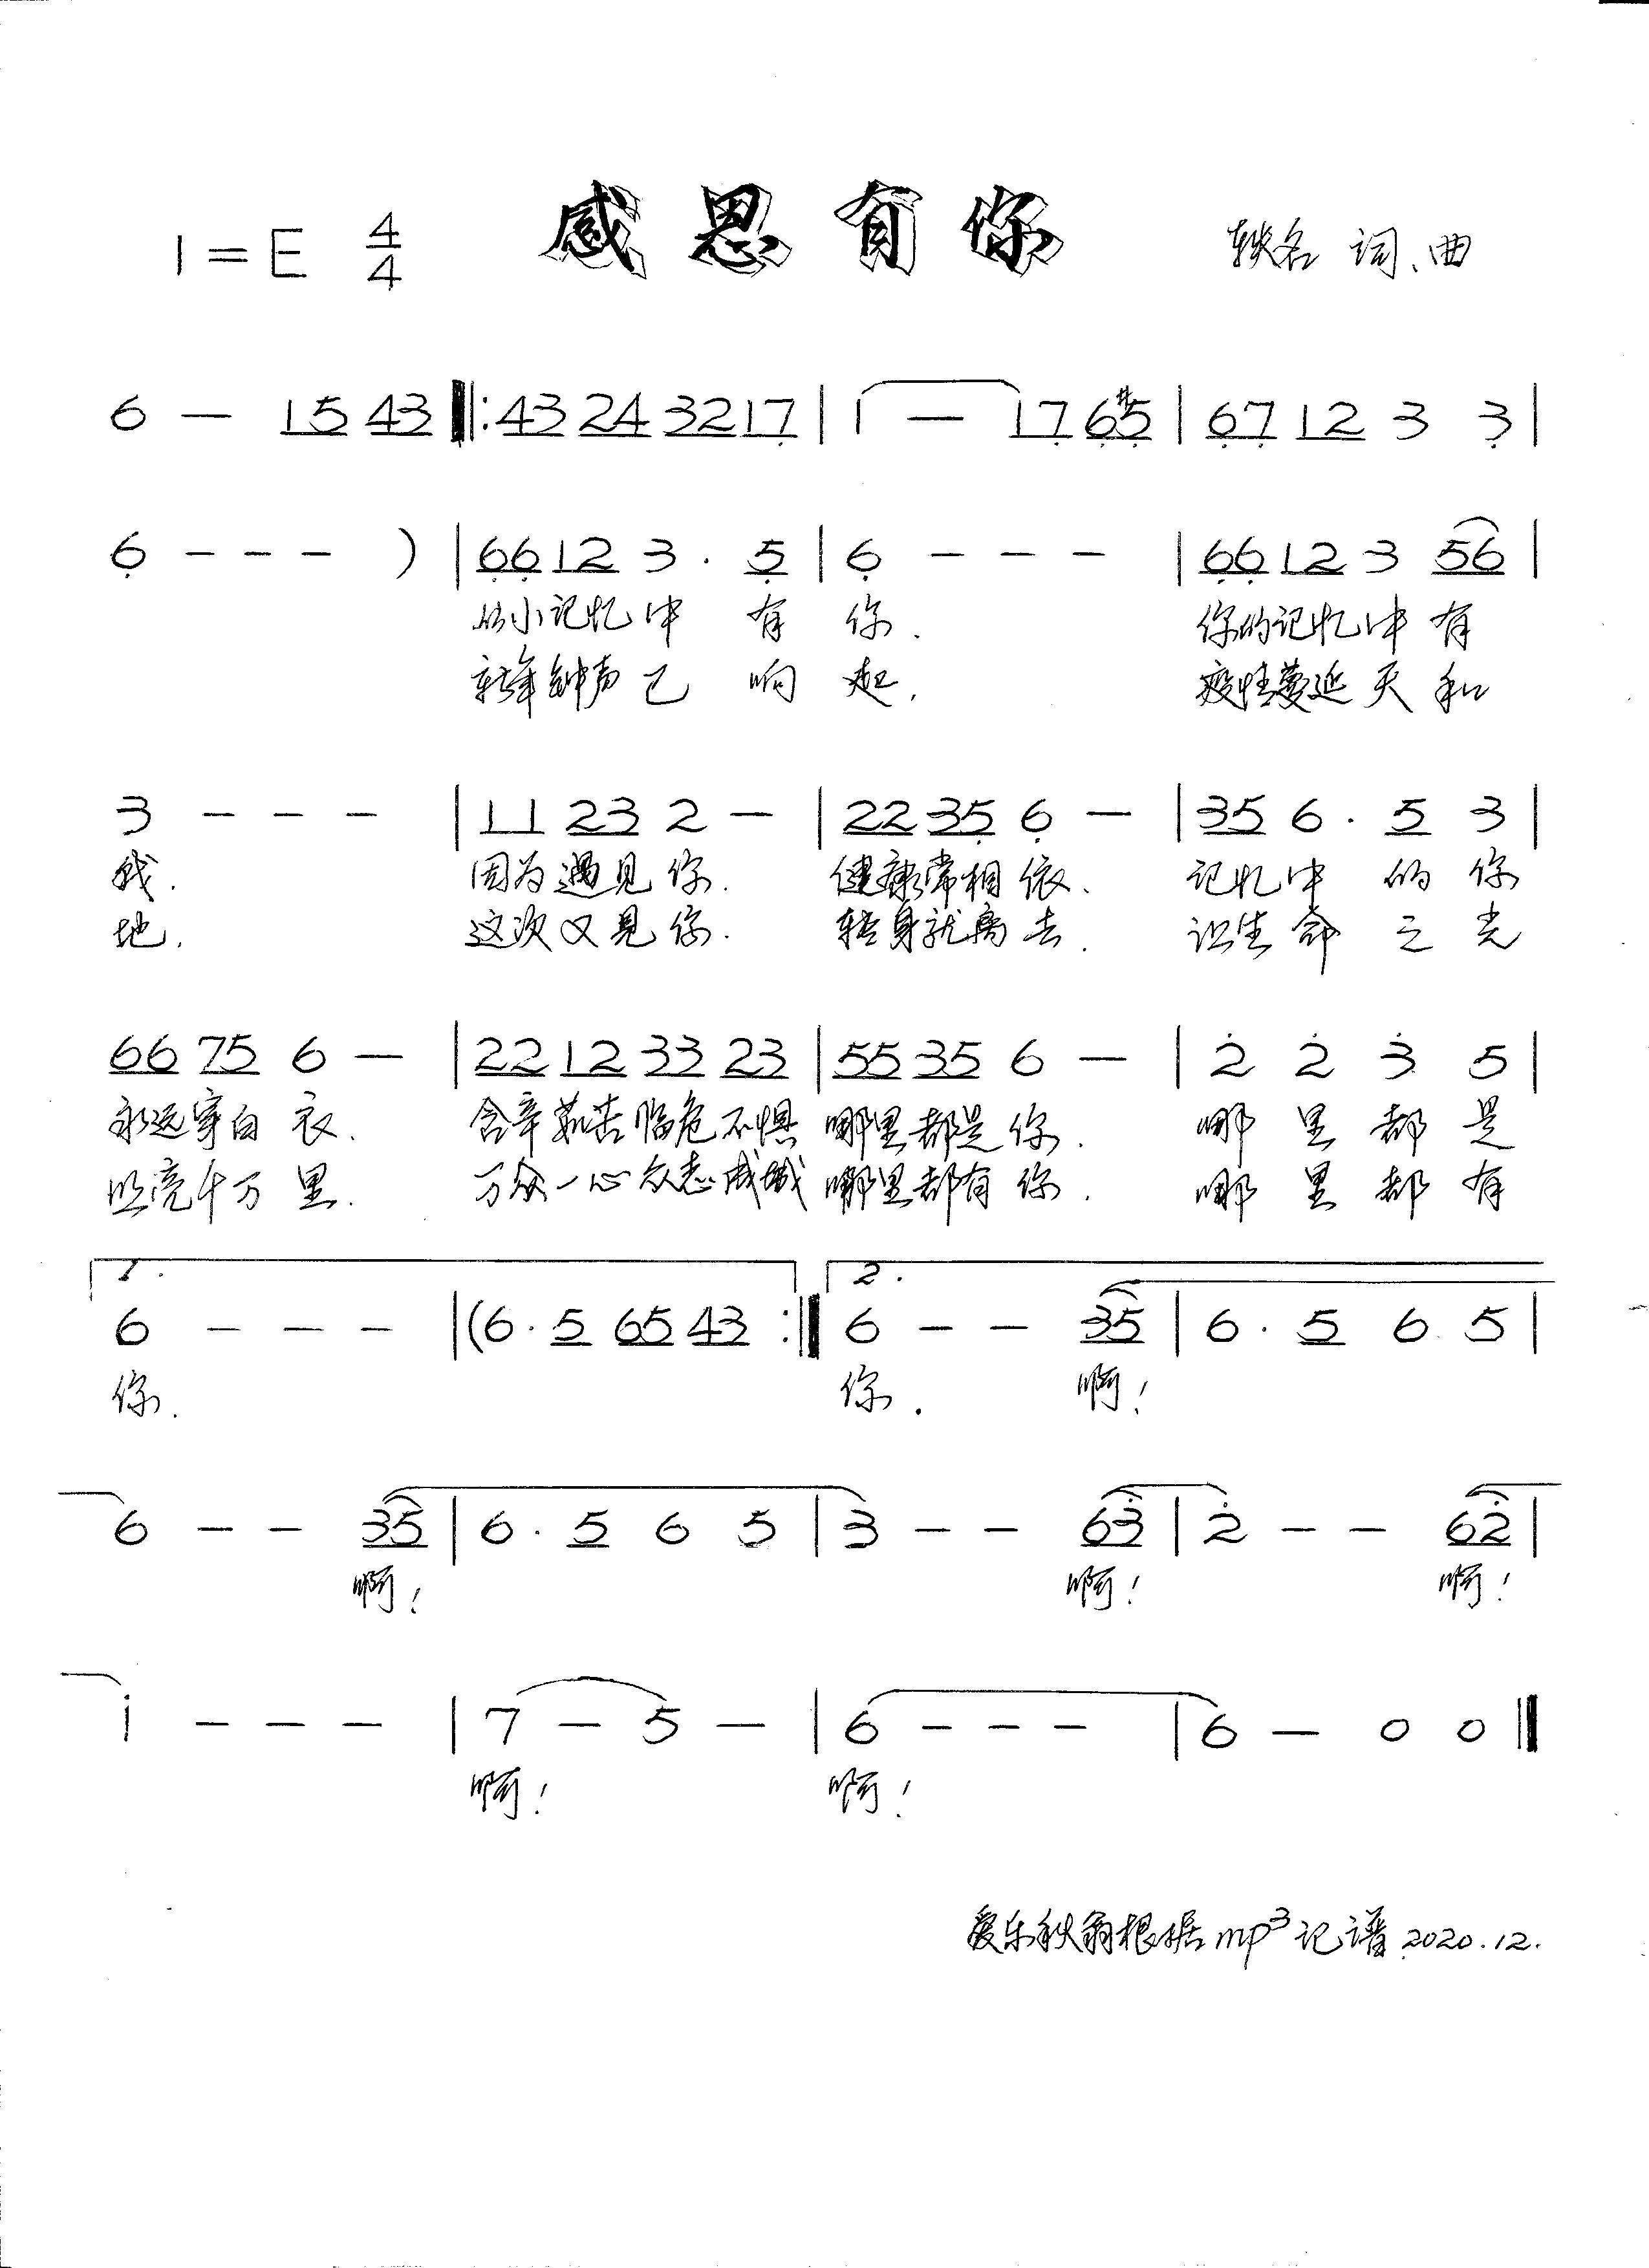 1=E 4/4 感恩有你 轶名 词、曲
6 — 15 43 ‖: 43 24 32 17 | 1 — 17 6#5 | 67 12 3 3 |
6 - - - ) | 66 12 3 . 5 | 6 - - - | 66 12 3 56 |
从小记忆中 有 你. 你的记忆中 有
新年钟声已 响 起. 疫情蔓延天 和
3 - - - | 11 23 2 — | 22 35 6 — | 35 6 . 5 3 |
我. 因为遇见你. 健康常相依. 记忆中 的 你
地. 这次又见你. 转身就离去. 让生命 之 光
66 75 6 — | 22 12 33 23 | 55 35 6 — | 2 2 3 5 |
永远穿白衣. 含辛茹苦临危不惧 哪里都是你. 哪 里 都 是
照亮千万里. 万众一心众志成城 哪里都有你. 哪 里 都 有
1. 2.
6 - - - | (6 . 5 65 43 :‖ 6 - - 35 | 6 . 5 6 5 |
你. 你. 啊!
6 - - 35 | 6 . 5 6 5 | 3 - - 63 | 2 - - 62 |
啊! 啊! 啊!
i - - - | 7 — 5 — | 6 - - - | 6 — 0 0 ‖
啊! 啊!
爱乐秋翁根据mp3记谱 2020.12.